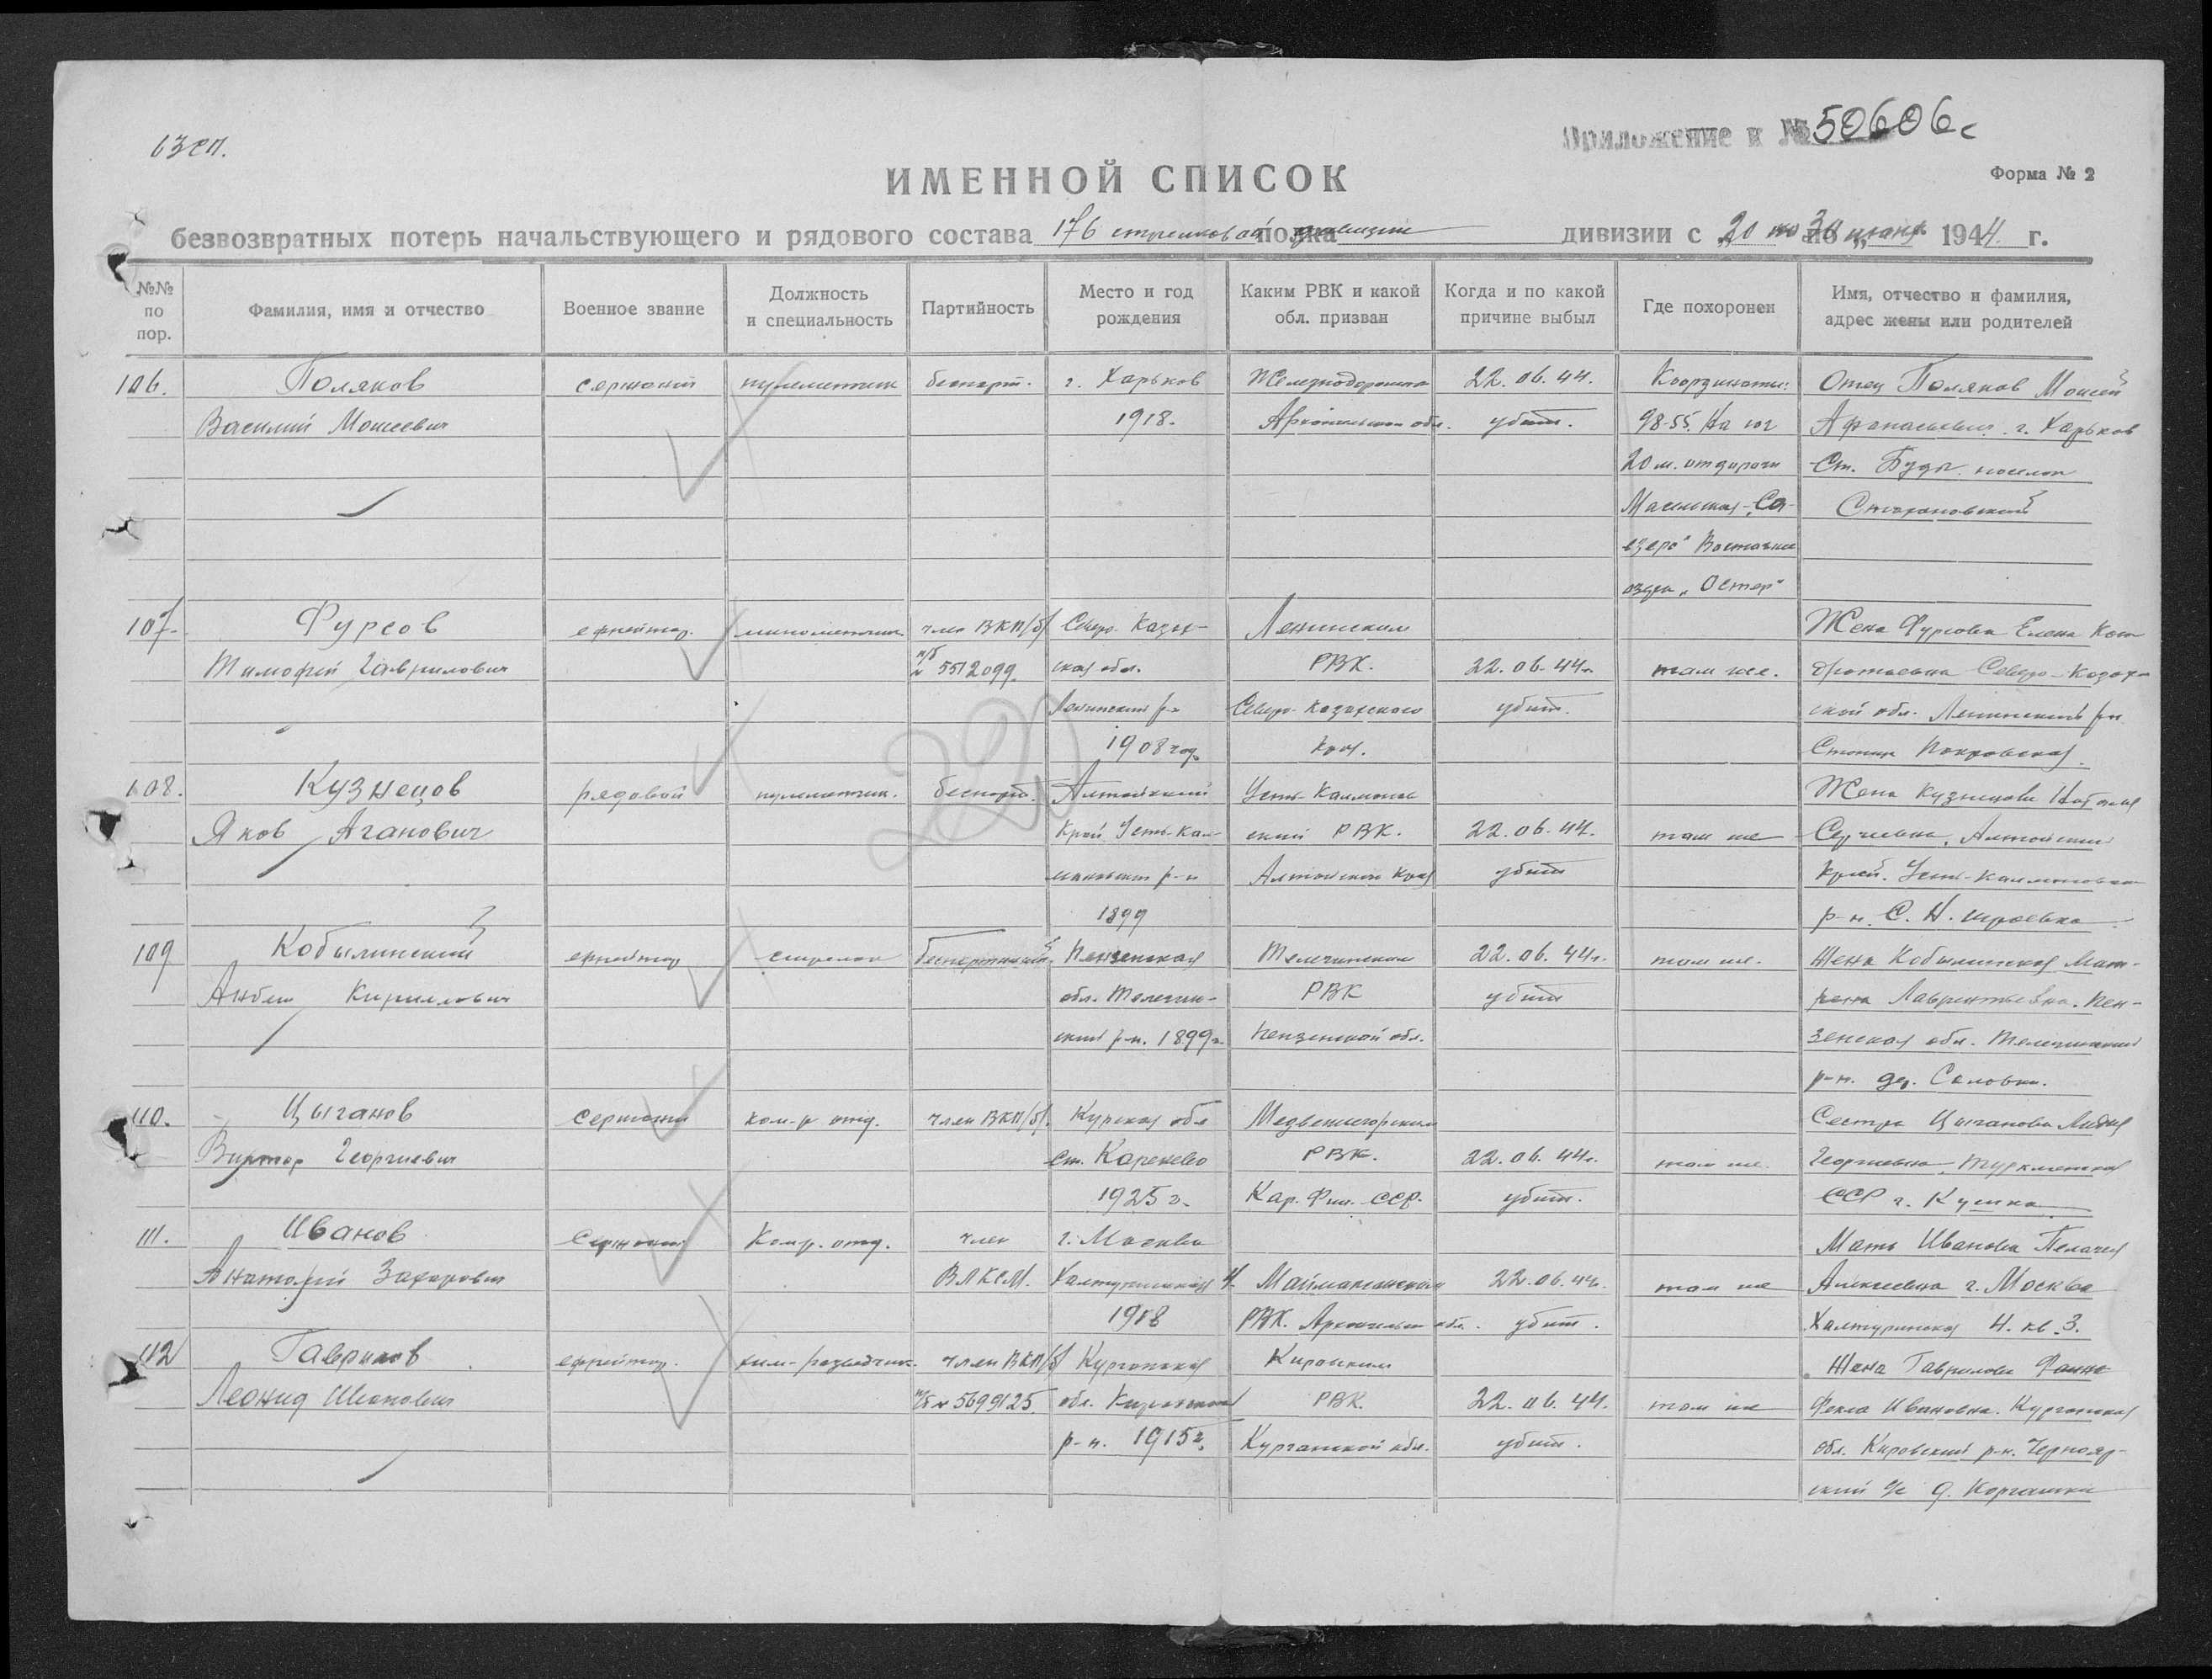 63 сп.
Приложение к № 50606с
ИМЕННОЙ СПИСОК
Форма № 2
безвозвратных потерь начальствующего и рядового состава 176 стрелковой полка дивизии дивизии с 20 по 30 июня 1944 г.
№№ по пор.
Фамилия, имя и отчество
Военное звание
Должность и специальность
Партийность
Место и год рождения
Каким РВК и какой обл. призван
Когда и по какой причине выбыл
Где похоронен
Имя, отчество и фамилия, адрес жены или родителей
106. Поляков сержант пулеметчик беспарт. г. Харьков Железнодорожн 22.06.44. Координаты: Отец Поляков Моисей
Василий Моисеевич 1918. обл. убит. 98-55. На юг Афанасьевич. г. Харьков
20 м. от дороги Ст. Буды. поселок
Масельская-
озеро" Восточнее
озера "Остер"
107. Фурсов ефрейтор. минометчик член ВКП/б/ Северо-Казах- Ленинским Жена Фурсова Елена Кон
Тимофей Гаврилович п/б № 5512099. ская обл. РВК. 22.06.44г. там же. дратьевна Северо-Казах-
Ленинский р-н Северо-Казахского убит. ской обл. Ленинский р-н.
1908 год. края. Станица Покровская.
108. Кузнецов рядовой пулеметчик. беспарт. Алтайский Усть-Калманс Жена Кузнецова Наталья
Яков Аганович Край Усть-Кал- ский РВК. 22.06.44. там же Сергеевна, Алтайский
мановск р-н Алтайского Края убит Край. Усть-Калмановск
1899 р-н. С.
109 Кобылинский ефрейтор стрелок беспартийный. Пензенская Телегинским 22.06.44г. там же. Жена Кобылинская Мат-
Кириллович обл. Телегин- РВК убит рена Лаврентьевна. Пен-
ский р-н. 1899г. Пензенской обл. зенская обл. Телегинский
р-н. дер. Соловки.
110. Цыганов Сержант ком-р отд. член ВКП/б/. Курская обл Медвежьегорским Сестра Цыганова Лидия
Виктор Георгиевич Ст. Коренево РВК. 22.06.44г. там же. Георгиевна. Туркменская
1925г. Кар. Фин. ССР. убит. ССР г. Кушка
111. Иванов Сержант Ком-р. отд. член г. Москва Мать Иванова Пелагея
Анатолий Захарович ВЛКСМ. Халтуринская 4. Маймаксанским 22.06.44. там же Алексеевна г. Москва
1918 РВК. Архангельск обл. убит. Халтуринская 4. кв. 3.
112 Гаврилов ефрейтор. хим-разведчик. член ВКП/б/ Курганская Кировским Жена Гаврилова
Леонид Иванович п/б № 5699125. обл. Кировский РВК. 22.06.44. там же Фекла Ивановна. Курганская
р-н. 1915г. Курганской обл. убит. обл. Кировский р-н. Чернояр-
ский с/с д.
220